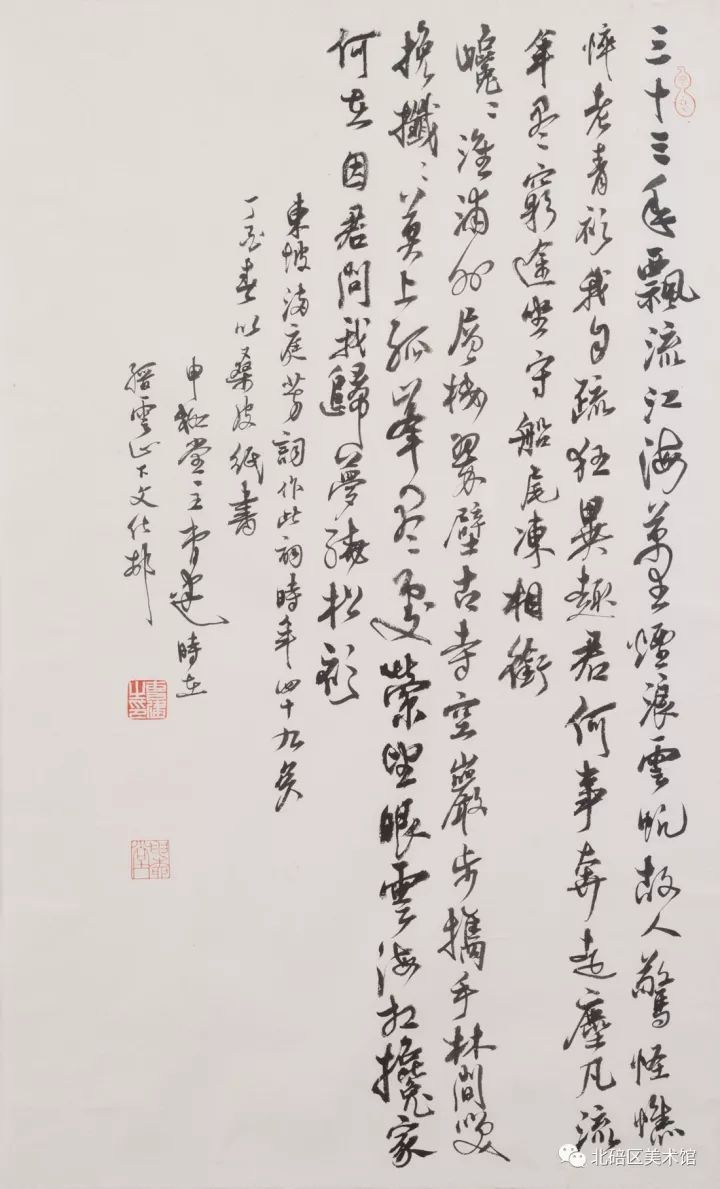 三十三年飄流江海萬里煙浪雲帆故人驚怪憔
悴老青衫我自疏狂異趣君何事奔走塵凡流
年尽窮途坐守船尾凍相銜
巉〻淮浦外層樓翠壁古寺空巖步攜手林間笑
挽攕〻莫上孤峯尽處縈望眼雲海相攙家
何在因君問我歸夢繞松衫
東坡滿庭芳詞作此詞時年四十九矣
丁酉春以桑皮紙書
堂主曹建時在
縉雲山下文化邨
北碚区美术馆